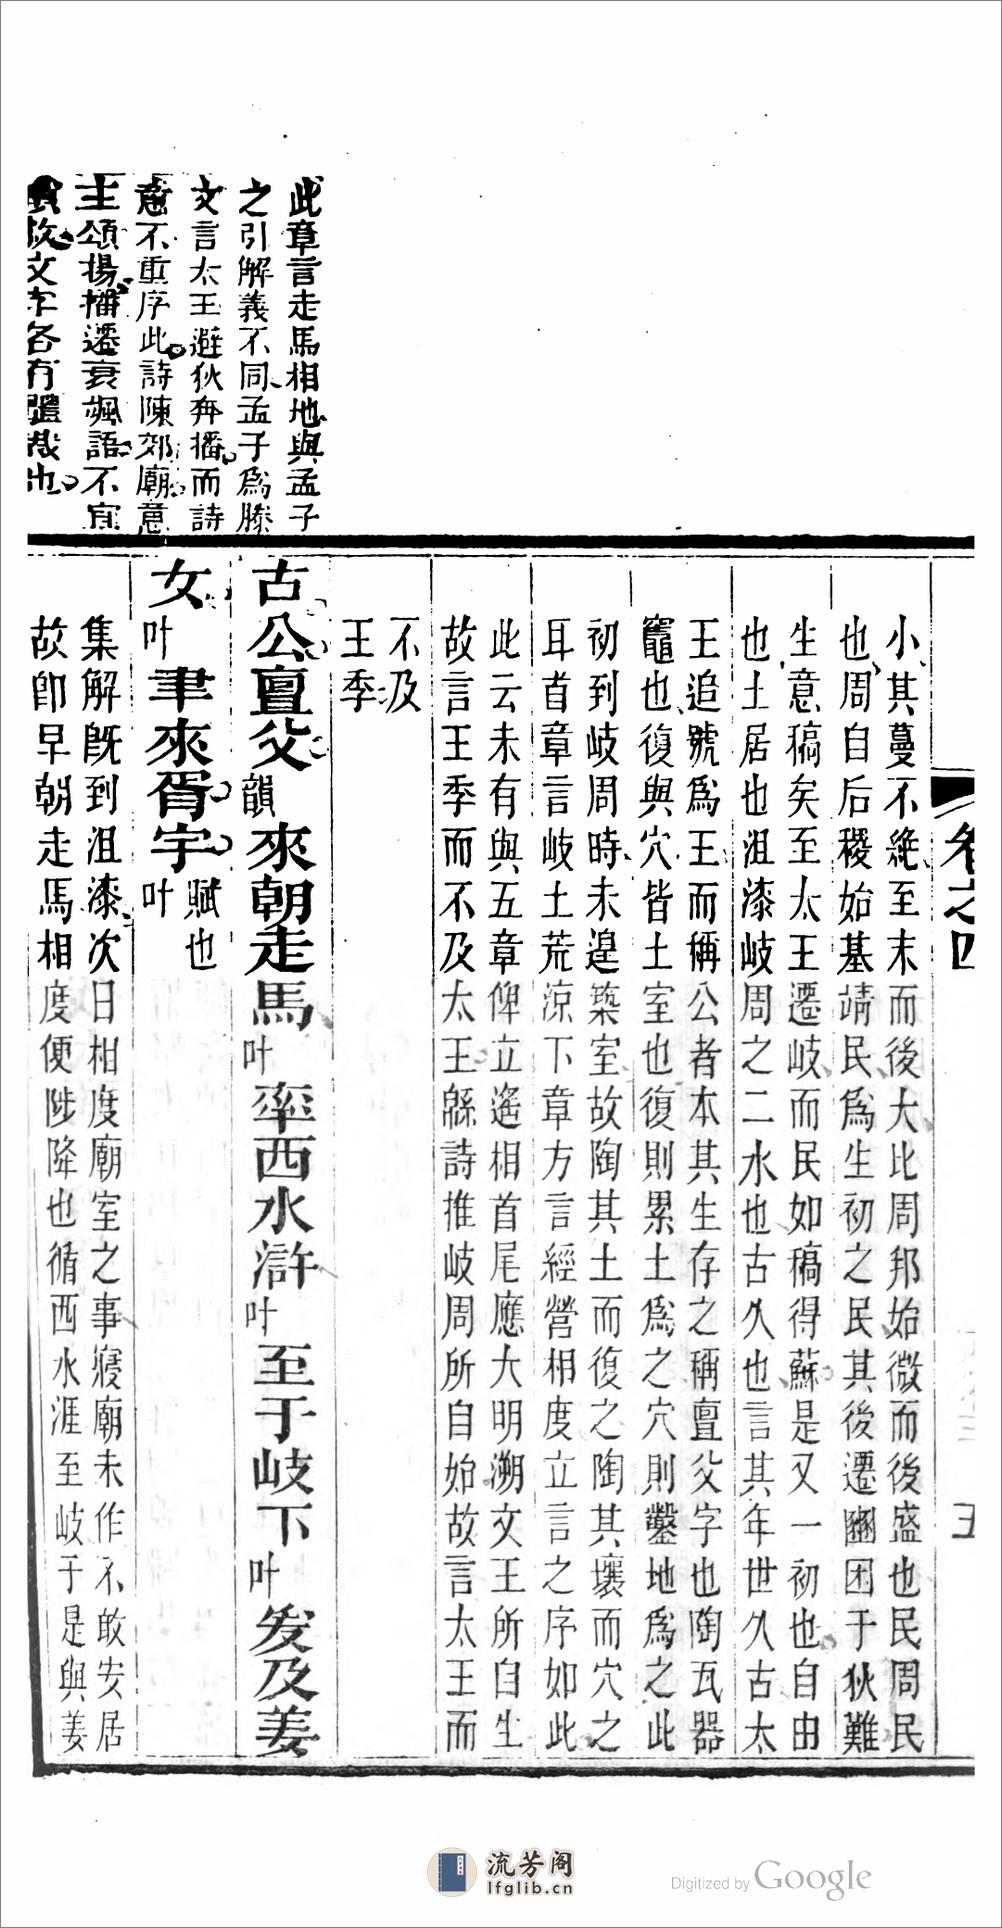 此章言走馬相地與孟子
之引解義不同孟子爲滕
文言太王避狄奔播而詩
意不重序此詩陳郊廟意
主頌揚播遷衰颯語不宜
故文字各有體裁也
卷之四
五
小其蔓不絶至末而後大比周邦始微而後盛也民周民
也周自后稷始基靖民爲生初之民其後遷豳困于狄難
生意稿矣至太王遷岐而民如稿得蘇是又一初也自由
也土居也沮漆岐周之二水也古久也言其年世久古太
王追號爲王而稱公者本其生存之稱亶父字也陶瓦器
竈也復與穴皆土室也復則累土爲之穴則鑿地爲之此
初到岐周時未遑築室故陶其土而復之陶其壤而穴之
耳首章言岐土荒涼下章方言經營相度立言之序如此
此云未有與五章俾立遙相首尾應大明溯文王所自生
故言王季而不及太王緜詩推岐周所自始故言太王而
不及
王季
古公亶父韻來朝走馬叶率西水滸叶至于岐下叶爰及姜
女叶聿來胥宇賦也叶
集解既到沮漆次日相度廟室之事寢廟未作不敢安居
故卽早朝走馬相度便陟降也循西水涯至岐于是與姜
流芳阁
lfglib.cn
Digitized by Google